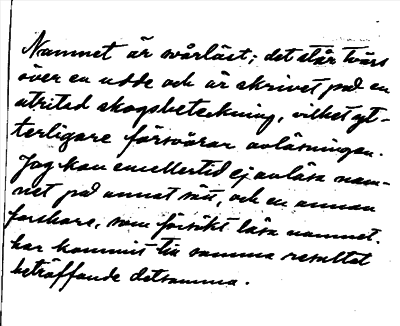 Namnet är svårläst; det står tvärs
över en udde och är skrivet på en
utritad skogsbeteckning, vilket yt-
terligare försvårar avläsningen.
Jag kan emellertid ej avläsa nam-
net på annat sätt, och en annan
forskare, som försökt läsa namnet.
har kommit till samma resultat
beträffande detsamma.